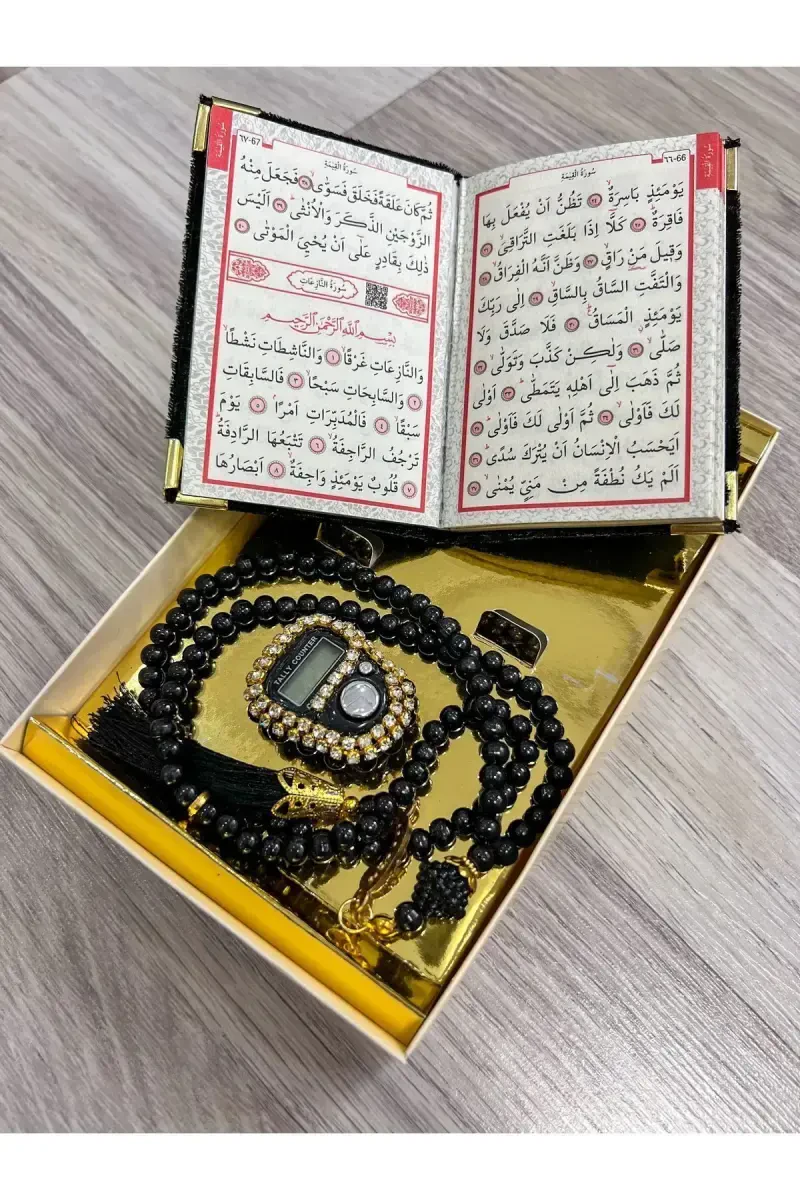 سُورَةُ الْقِيٰمَةِ
٦٦-66
سُورَةُ الْقِيٰمَةِ
يَوْمَئِذٍ بَاسِرَةٌۙ ٢٤ تَظُنُّ اَنْ يُفْعَلَ بِهَا
فَاقِرَةٌۜ ٢٥ كَلَّٓا اِذَا بَلَغَتِ التَّرَاقِيَۙ ٢٦
وَق۪يلَ مَنْ رَاقٍۙ ٢٧ وَظَنَّ اَنَّهُ الْفِرَاقُۙ ٢٨
وَالْتَفَّتِ السَّاقُ بِالسَّاقِۙ ٢٩ اِلٰى رَبِّكَ
يَوْمَئِذٍۨ الْمَسَاقُ ٣٠ فَلَا صَدَّقَ وَلَا
صَلّٰىۙ ٣١ وَلٰكِنْ كَذَّبَ وَتَوَلّٰىۙ ٣٢
ثُمَّ ذَهَبَ اِلٰٓى اَهْلِه۪ يَتَمَطّٰىۜ ٣٣ اَوْلٰى
لَكَ فَاَوْلٰىۙ ٣٤ ثُمَّ اَوْلٰى لَكَ فَاَوْلٰىۜ ٣٥
اَيَحْسَبُ الْاِنْسَانُ اَنْ يُتْرَكَ سُدًىۜ ٣٦
اَلَمْ يَكُ نُطْفَةً مِنْ مَنِيٍّ يُمْنٰىۙ ٣٧
سُورَةُ الْقِيٰمَةِ
٦٧-67
سُورَةُ الْقِيٰمَةِ
ثُمَّ كَانَ عَلَقَةً فَخَلَقَ فَسَوّٰىۙ ٣٨ فَجَعَلَ مِنْهُ
الزَّوْجَيْنِ الذَّكَرَ وَالْاُنْثٰىۜ ٣٩ اَلَيْسَ
ذٰلِكَ بِقَادِرٍ عَلٰٓى اَنْ يُحْيِيَ الْمَوْتٰى ٤٠
سُورَةُ النَّازِعَاتِ
بِسْمِ اللّٰهِ الرَّحْمٰنِ الرَّح۪يمِ
وَالنَّازِعَاتِ غَرْقًاۙ ١ وَالنَّاشِطَاتِ نَشْطًاۙ
٢ وَالسَّابِحَاتِ سَبْحًاۙ ٣ فَالسَّابِقَاتِ
سَبْقًاۙ ٤ فَالْمُدَبِّرَاتِ اَمْرًاۢ ٥ يَوْمَ
تَرْجُفُ الرَّاجِفَةُۙ ٦ تَتْبَعُهَا الرَّادِفَةُۜ
٧ قُلُوبٌ يَوْمَئِذٍ وَاجِفَةٌۙ ٨ اَبْصَارُهَا
TALLY COUNTER